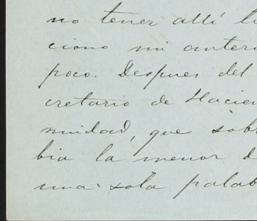 no tener allí lu
ciono mi anteri
poco. Despues del
cretario de Hacien
munidad, que sobr
bia la menor d
una sola palab